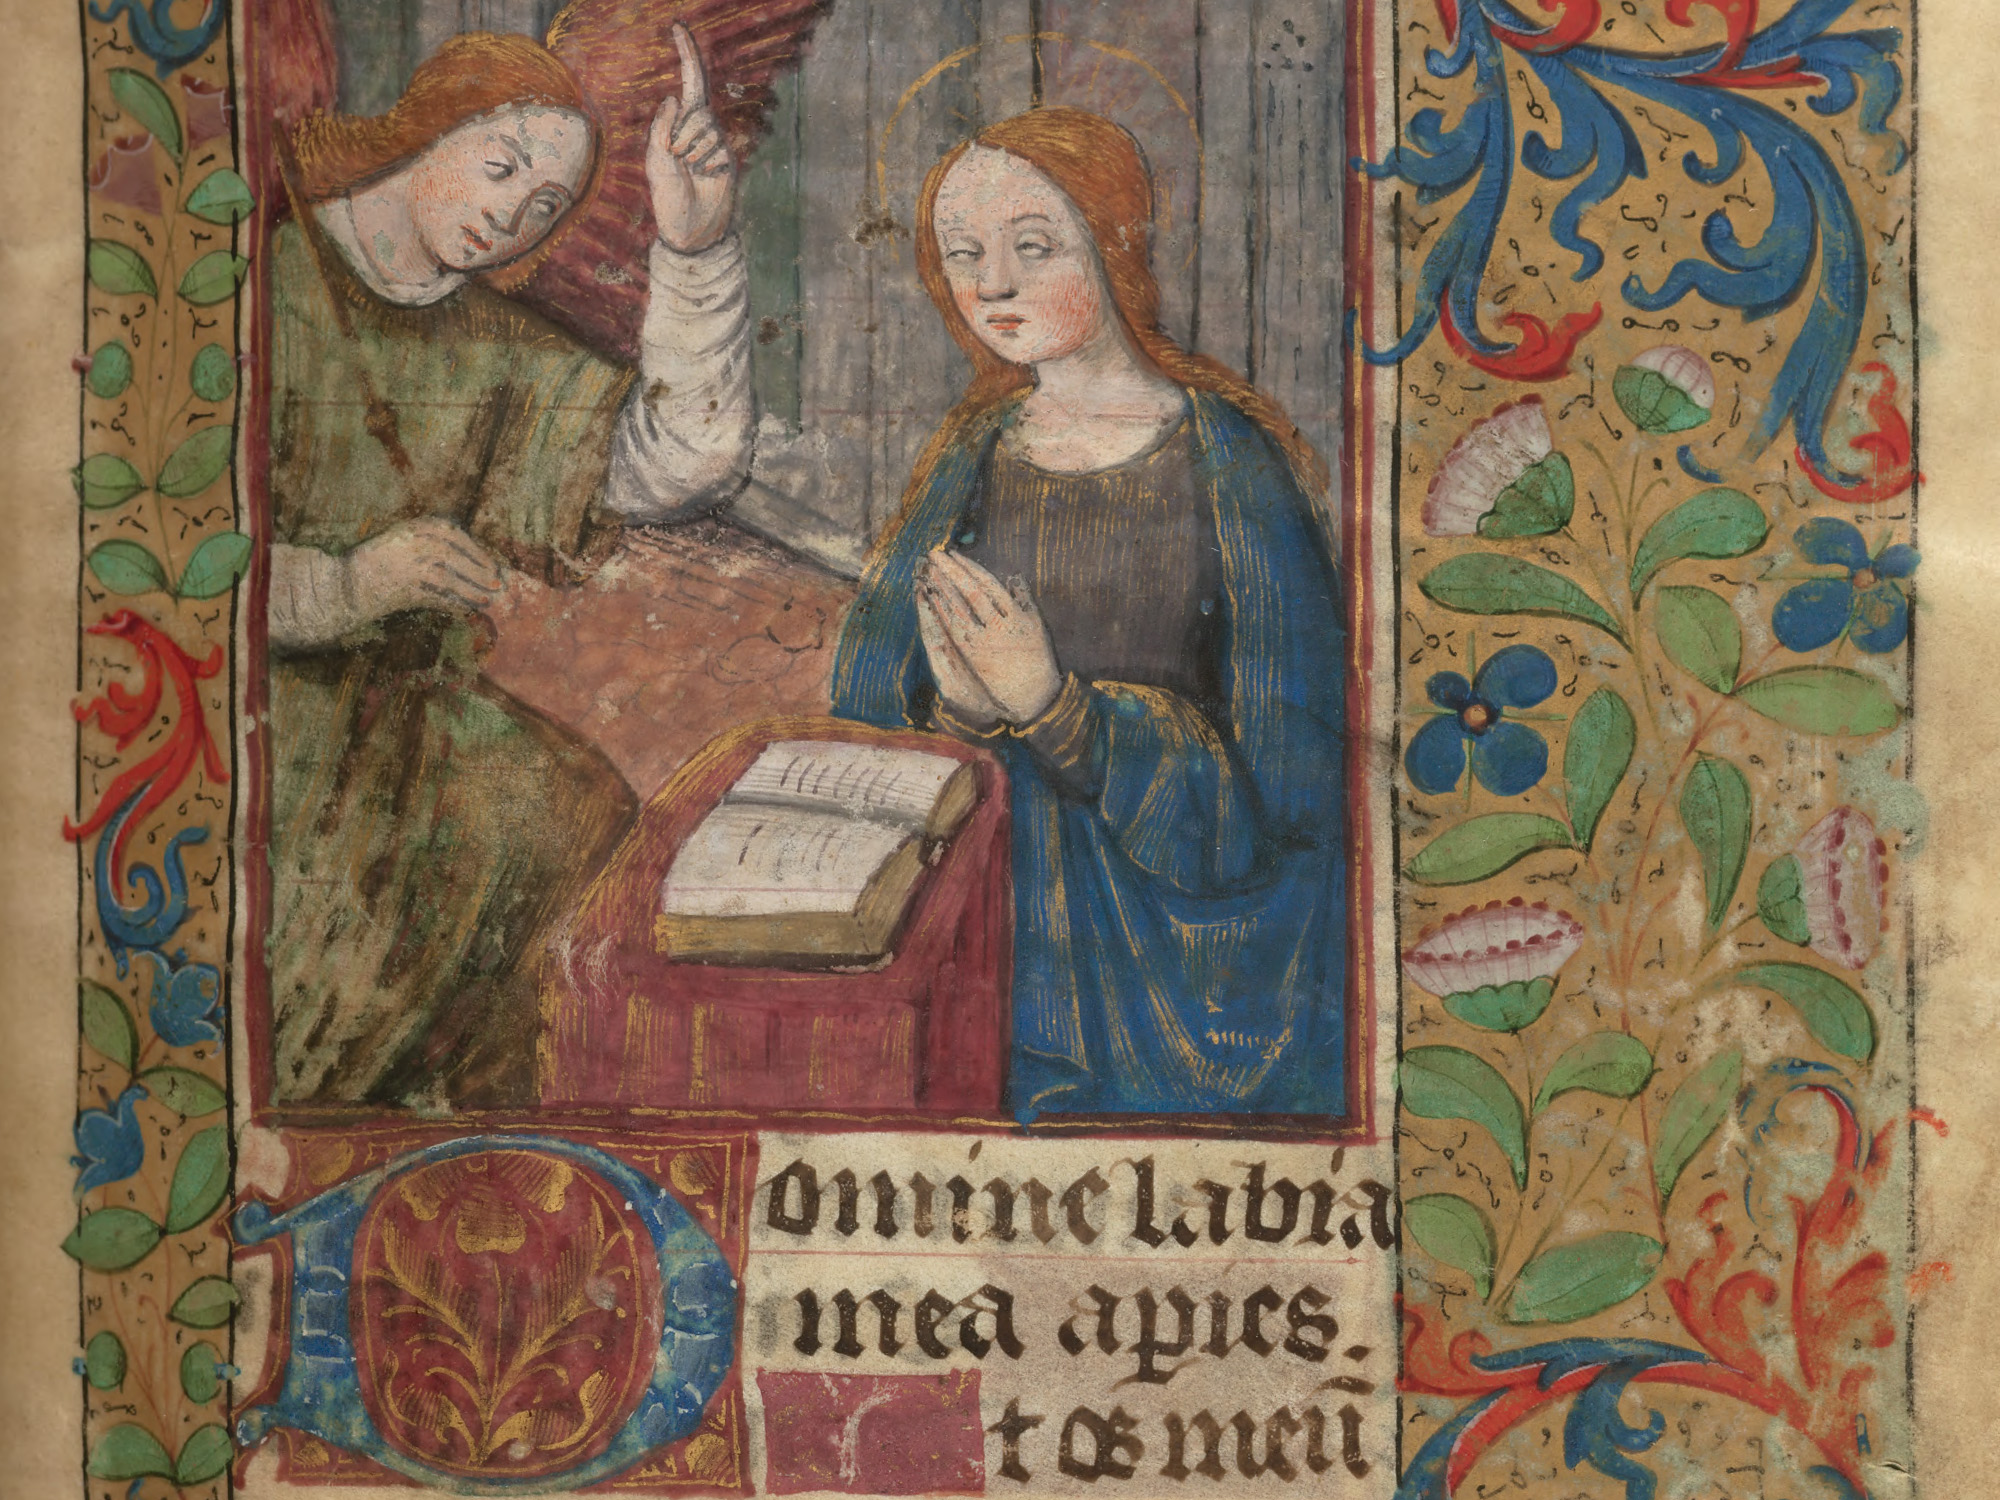 Domine labia
mea apies.
Et os meū